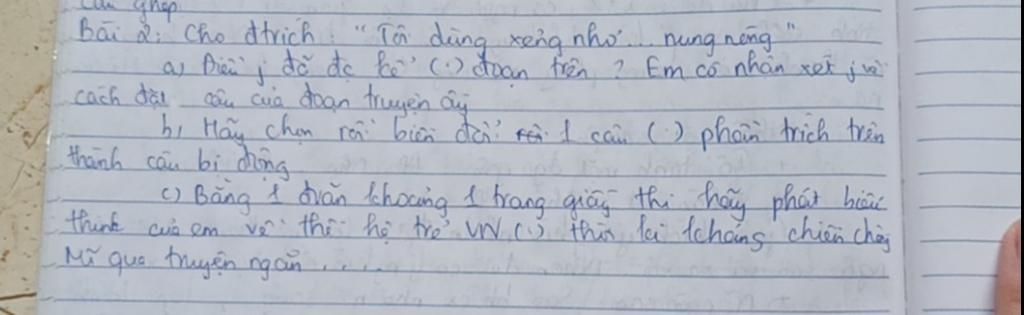 câu ghép
Bài 2: Cho đtrích "Tôi dùng xẻng nhỏ... nung nóng"
a) Điều j đã đc kể (.) đoạn trên ? Em có nhận xét j về
cách đặt câu của đoạn truyện ấy
b, Hãy chọn rồi biến đổi 1 câu (.) phần trích trên
thành câu bị động
c) Bằng 1 đvăn khoảng 1 trang giấy thi hãy phát biểu
think của em về thế hệ trẻ VN (.) thời kì kháng chiến chống
Mĩ qua truyện ngắn .....